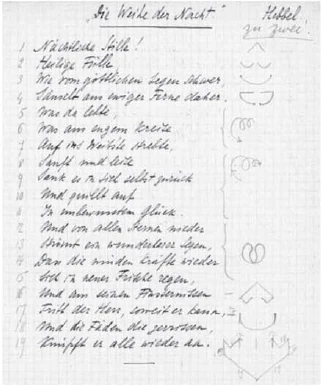 "Die Weihe der Nacht" Hebbel.
zu zwei:
1 Nächtliche Stille!
2 Heilige Fülle,
3 Wie von göttlichem Segen schwer,
4 Säuselt aus ewiger Ferne daher.
5 Was da lebte,
6 Was aus engem Kreise
7 Auf ins Weitste strebte,
8 Sanft und leise
9 Sank es in sich selbst zurück
10 Und quillt auf
11 In unbewusstem Glück.
12 Und von allen Sternen nieder
13 Strömt ein wunderbarer Segen,
14 Dass die müden Kräfte wieder
15 Sich in neuer Frische regen,
16 Und aus seinen Finsternissen
17 Tritt der Herr, soweit er kann,
18 Und die Fäden, die zerrissen,
19 Knüpft er alle wieder an.